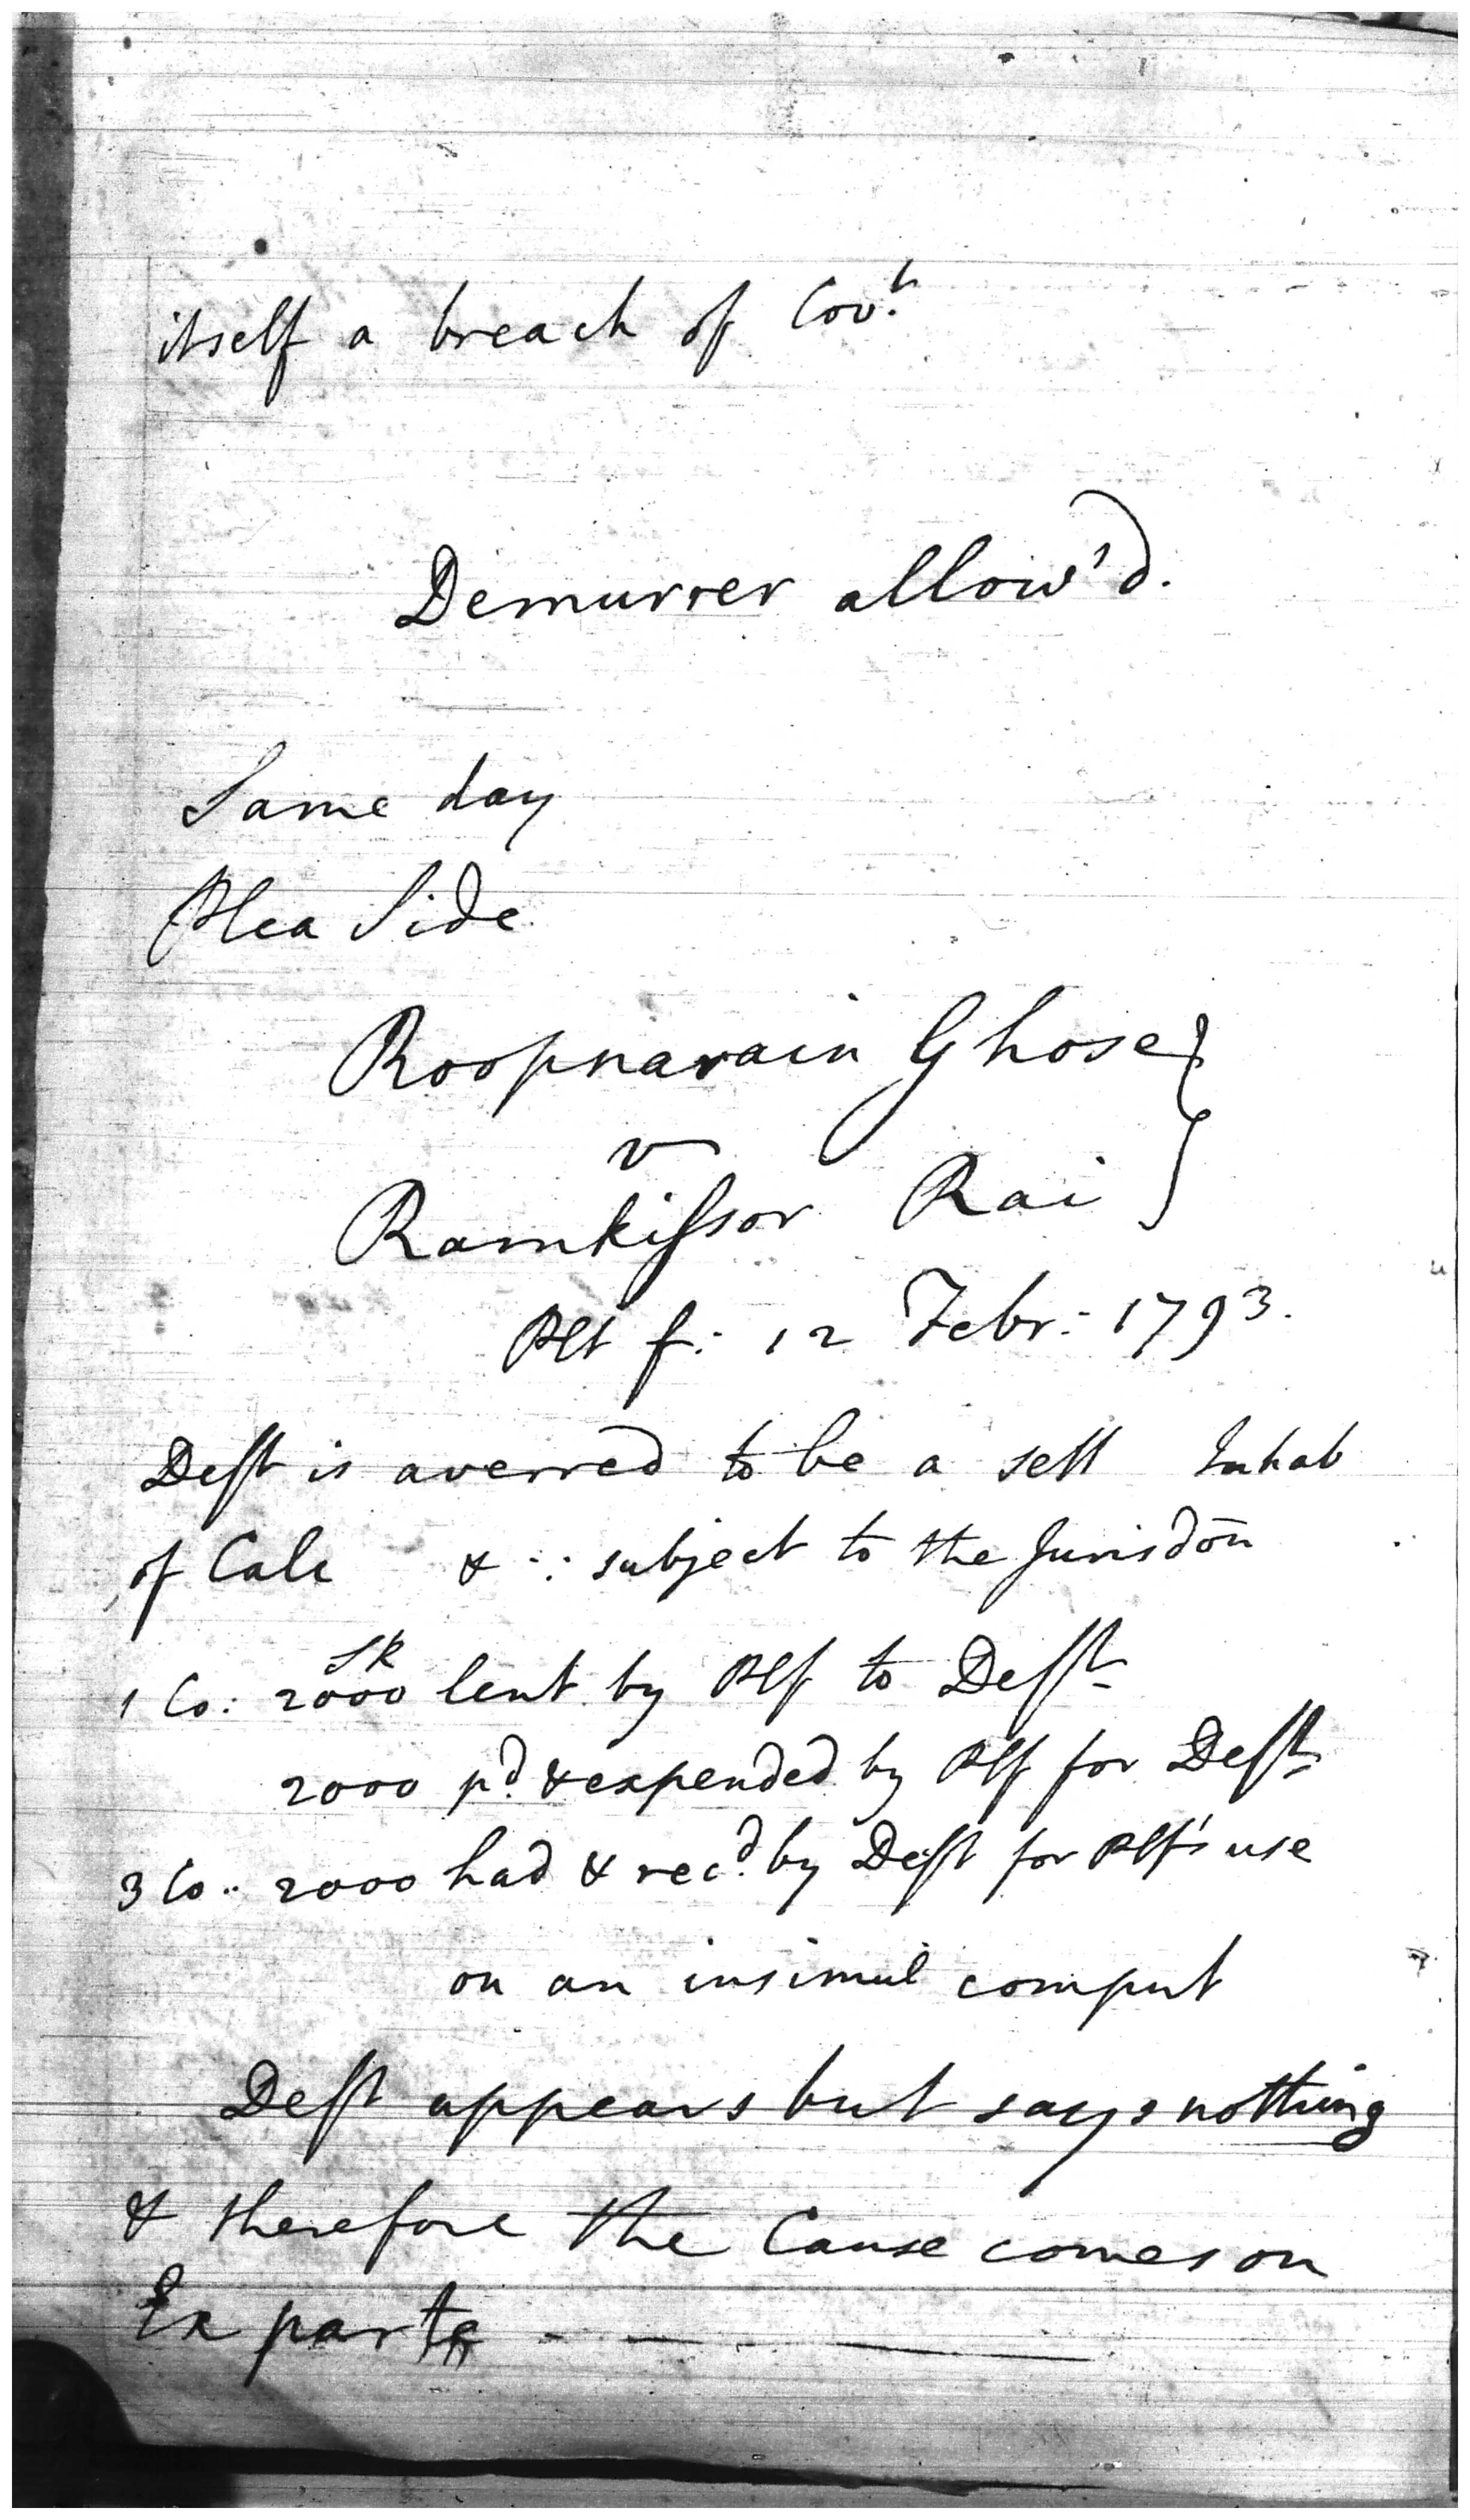 itself a breach of Cov.t
Demurrer allow'd.
Same day
Plea Side
Roopnarain Ghose }
v
Ramkissor Rai
Plt f: 12 Febr: 1793.
Deft is averred to be a sett Inhab
of Calc & ∴ subject to the Jurisdon
SR
1 Co: 2000 lent by Plf to Deft
2000 pd. & expended by Plf for Deft
3 Co: 2000 had & recd. by Deft for Plf's use
on an insimul comput
Deft appears but says nothing
& therefore the Cause comes on
Ex parte